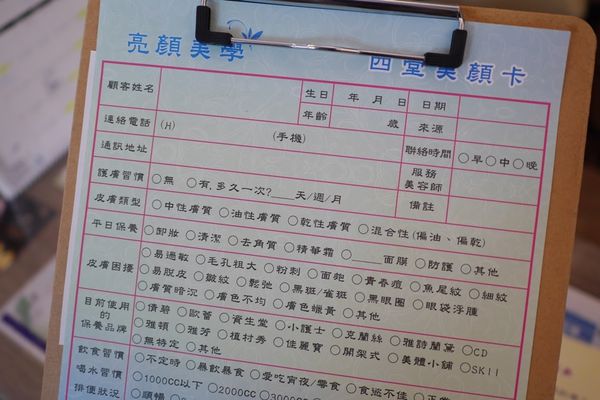 亮顏美學
四堂美顏卡
顧客姓名 生日 年 月 日 日期
年齡 歲 來源
連絡電話 (H) (手機) 聯絡時間 ○早○中○晚
通訊地址 服務美容師
護膚習慣 ○無 ○有,多久一次?___天/週/月 備註
皮膚類型 ○中性膚質 ○油性膚質 ○乾性膚質 ○混合性(偏油、偏乾)
平日保養 ○卸妝 ○清潔 ○去角質 ○精華霜 ○____面膜 ○防護 ○其他
皮膚困擾 ○易過敏 ○毛孔粗大 ○粉刺 ○面皰 ○青春痘 ○魚尾紋 ○細紋
○易脫皮 ○皺紋 ○鬆弛 ○黑斑/雀斑 ○黑眼圈 ○眼袋浮腫
○膚質暗沉 ○膚色不均 ○膚色蠟黃 ○其他
目前使用的保養品牌 ○倩碧 ○歐蕾 ○資生堂 ○小護士 ○克蘭絲 ○雅詩蘭黛 ○CD
○雅頓 ○雅芳 ○植村秀 ○佳麗寶 ○開架式 ○美體小舖 ○SKII
○無特定 ○其他
飲食習慣 ○不定時 ○暴飲暴食 ○愛吃宵夜/零食 ○食慾不佳 ○正常
喝水習慣 ○1000CC以下 ○2000CC ○3000CC
排便狀況 ○順暢